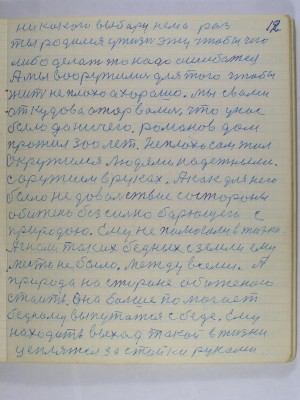 12
никакого выбару нема раз
ты родился у жизн эту чтобы чего
либо делат то надо ошибатся
А мы вооружились для того чтобы
жит не плохо а хорошо. мы с вами
откудова оторвались, что у нас
было да ничего. романов дом
прожил 300 лет. Неплохо сам жил
окружился людями надежными
с оружием в руках. А как для него
было не довольствие со стороны
обижено безсильно
природою. Ему не помогали в
таких бедных с земли ему
места не было. между всеми. А
природа на стороне обиженого
стаить. Она больше помогает
бедному выпутатся с беде. Ему
находить выход такой в жизни
цеплятся за стойки руками